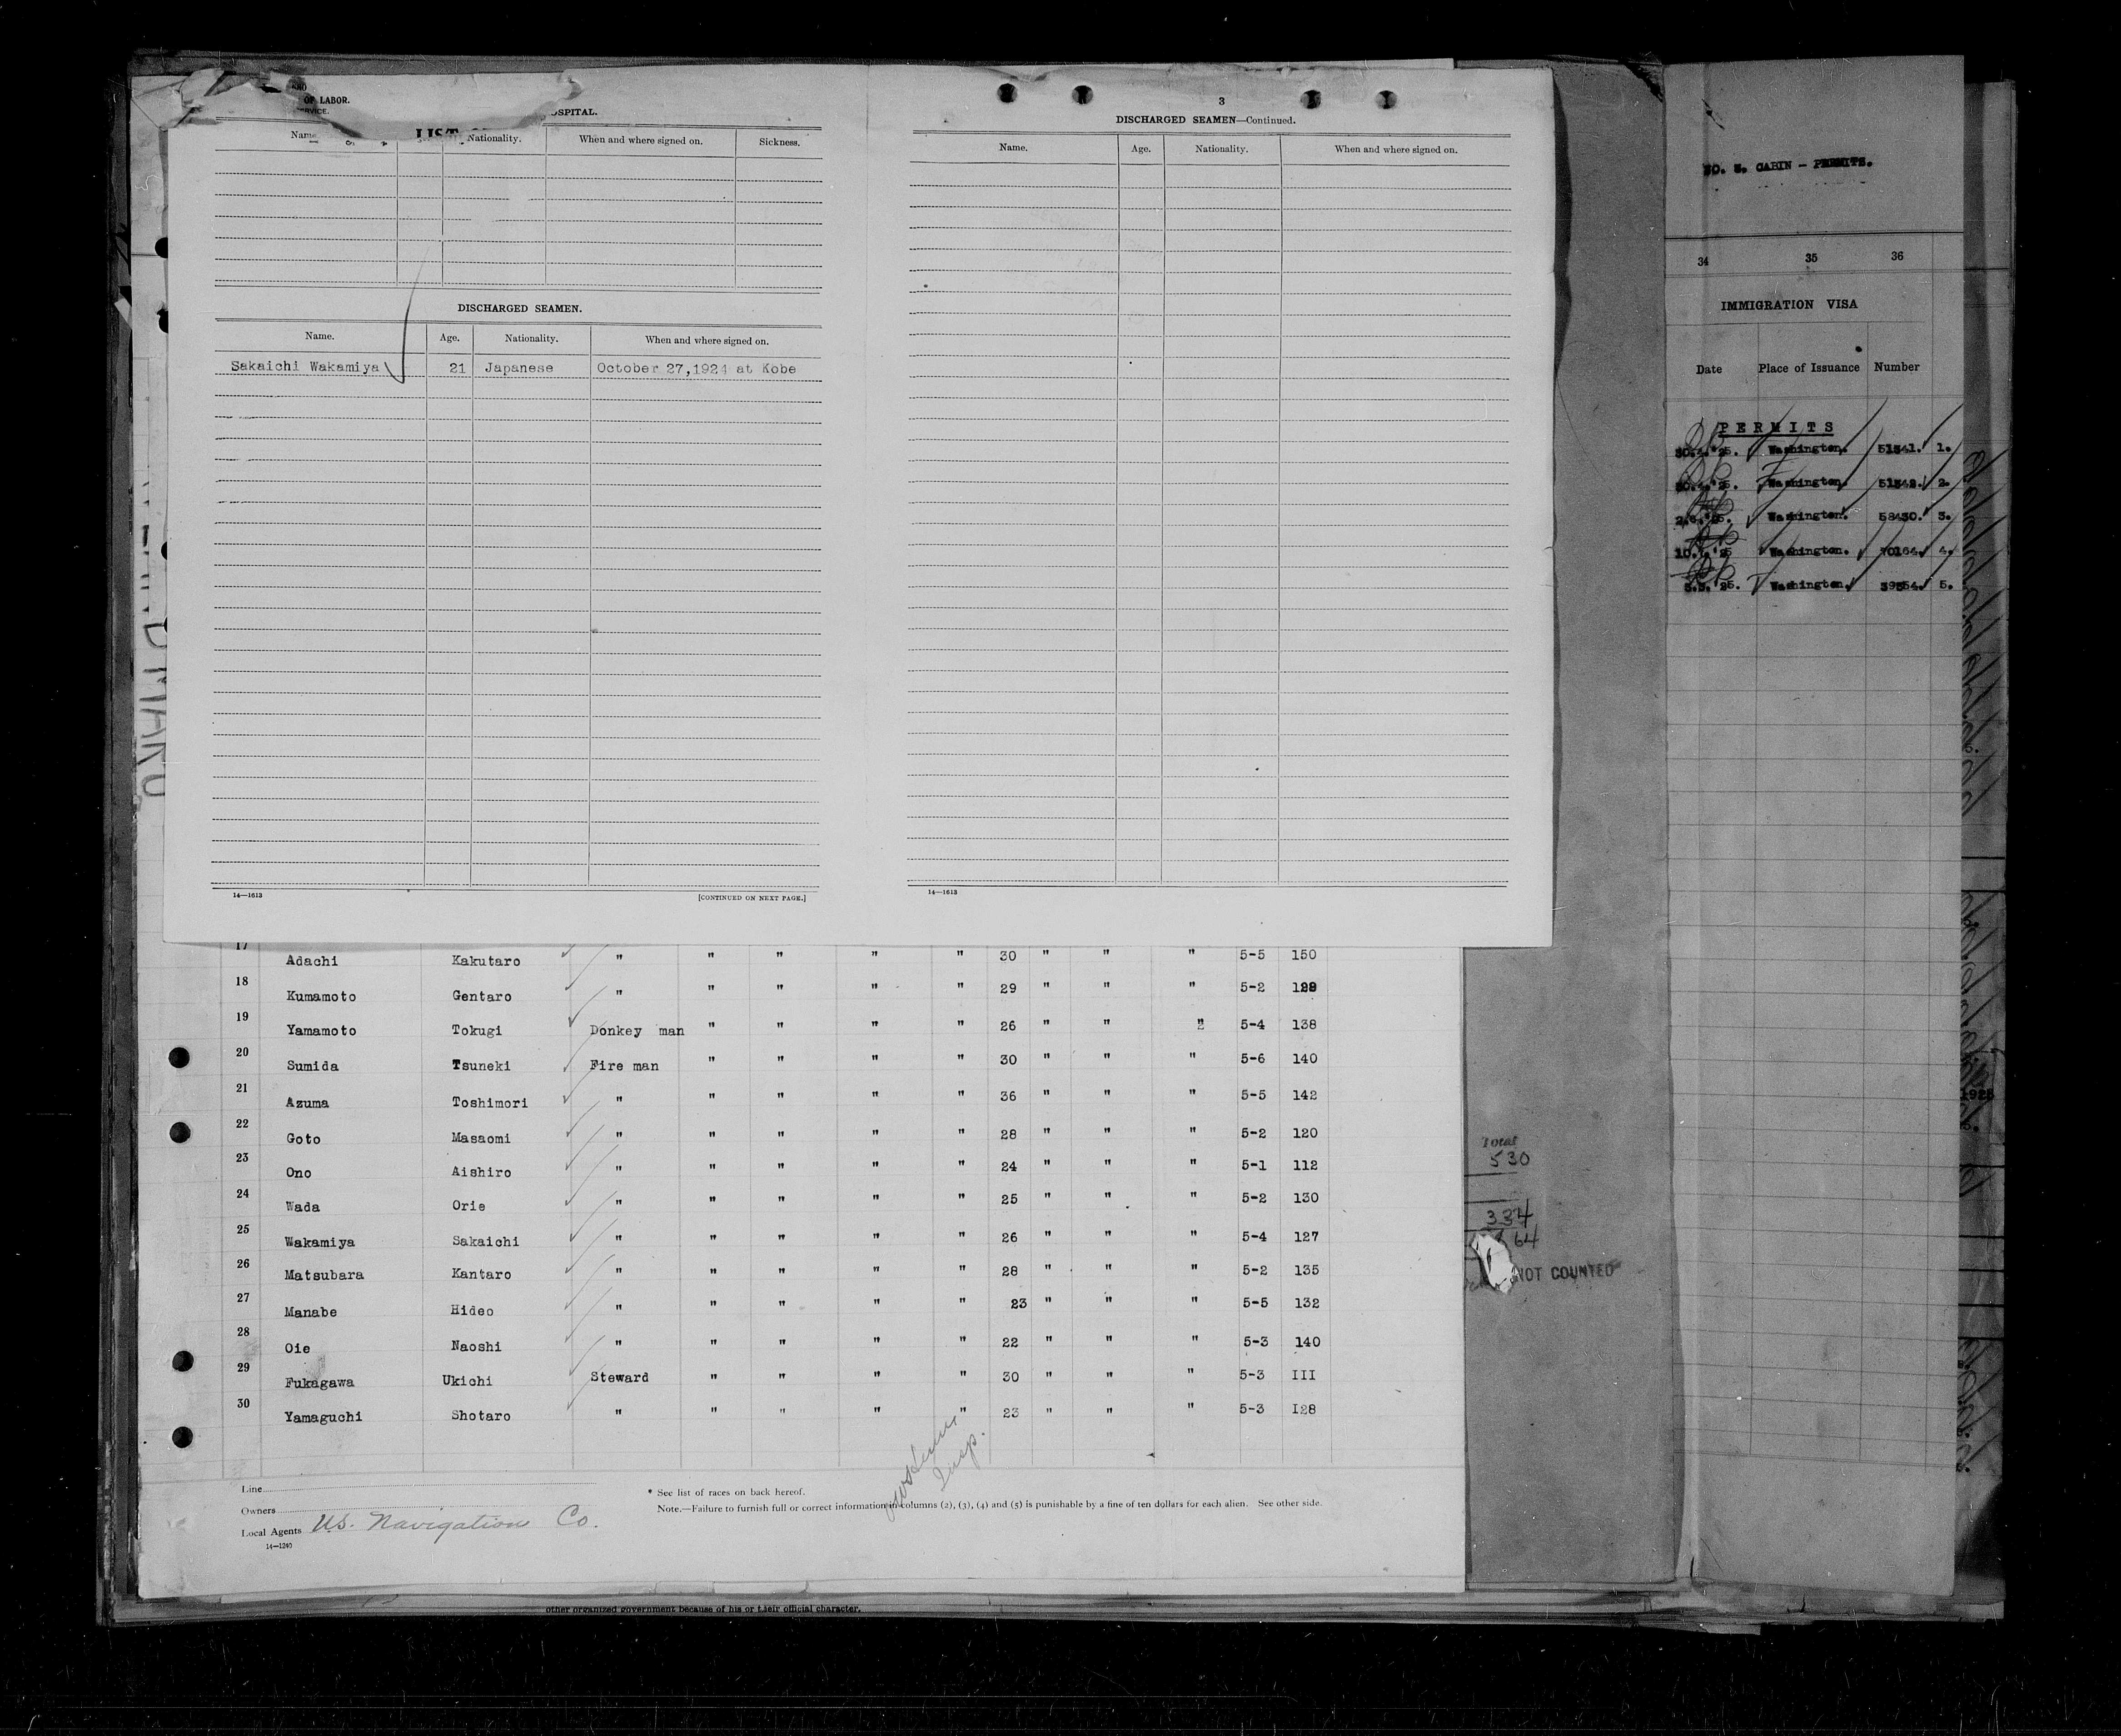 OF LABOR.
Name. Nationality. When and where signed on. Sickness.
DISCHARGED SEAMEN.
Name. Age. Nationality. When and where signed on.
Sakaichi Wakamiya 21 Japanese October 27,1924 at Kobe
14—1613 [CONTINUED ON NEXT PAGE.]
3
DISCHARGED SEAMEN—Continued.
Name. Age. Nationality. When and where signed on.
14—1613
17 Adachi Kakutaro " " " " " 30 " " " 5-5 150
18 Kumamoto Gentaro " " " " " 29 " " " 5-2
19 Yamamoto Tokugi Donkey man " " " " 26 " " " 5-4 138
20 Sumida Tsuneki Fire man " " " " 30 " " " 5-6 140
21 Azuma Toshimori " " " " " 36 " " " 5-5 142
22 Goto Masaomi " " " " " 28 " " " 5-2 120
23 Ono Aishiro " " " " " 24 " " " 5-1 112
24 Wada Orie " " " " " 25 " " " 5-2 130
25 Wakamiya Sakaichi " " " " " 26 " " " 5-4 127
26 Matsubara Kantaro " " " " " 28 " " " 5-2 135
27 Manabe Hideo " " " " " 23 " " " 5-5 132
28 Oie Naoshi " " " " " 22 " " " 5-3 140
29 Fukagawa Ukichi Steward " " " " 30 " " " 5-3 III
30 Yamaguchi Shotaro " " " " " 23 " " " 5-3 I28
Insp.
Line
Owners
Local Agents U.S. Navigation Co.
14—1240
* See list of races on back hereof.
Note.—Failure to furnish full or correct information in columns (2), (3), (4) and (5) is punishable by a fine of ten dollars for each alien. See other side.
other organized government because of his or their official character.
Total
530
334
64
NOT COUNTED
CABIN - PERMITS.
34 35 36
IMMIGRATION VISA
Date Place of Issuance Number
PERMITS
Washington. 51541. 1.
Washington. 51542. 2.
Washington. 58430. 3.
Washington. 70164. 4.
Washington. 39554. 5.